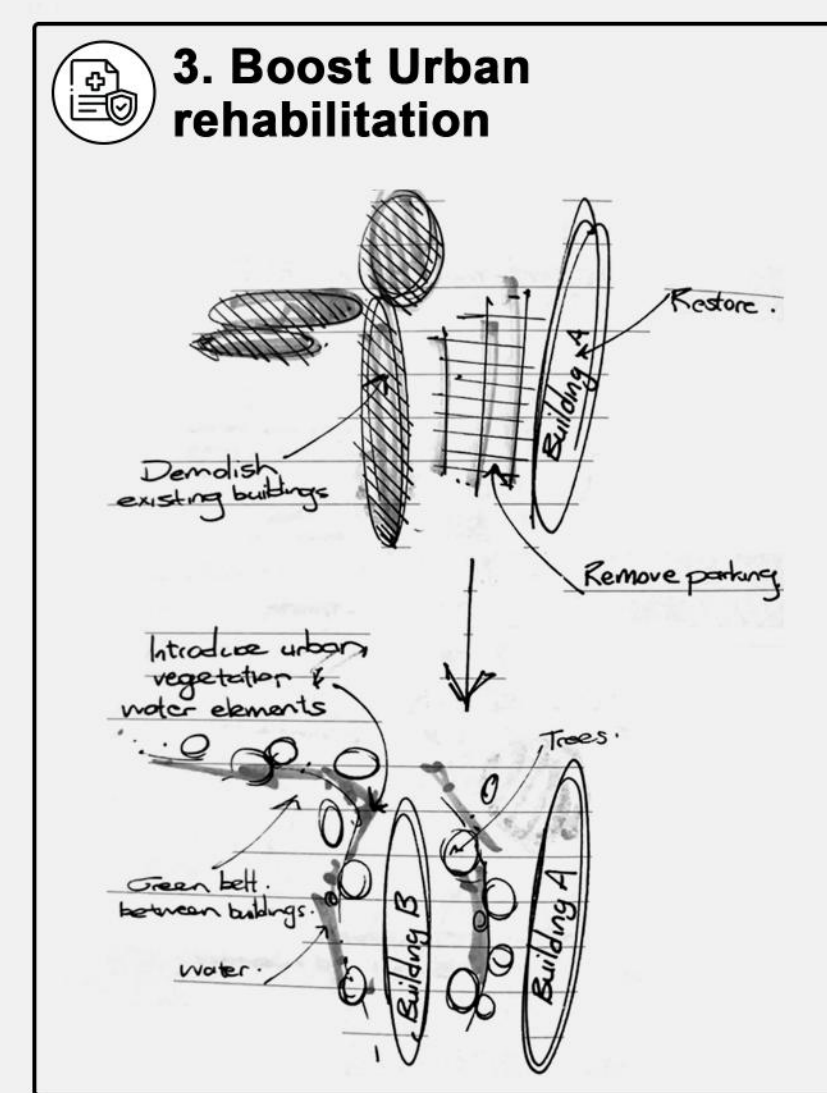 3. Boost Urban
rehabilitation
Restore.
Building A
Demolish
existing buildings
Remove parking
Introduce urban
vegetation &
water elements
Trees.
Green belt.
between buildings.
water.
Building B
Building A